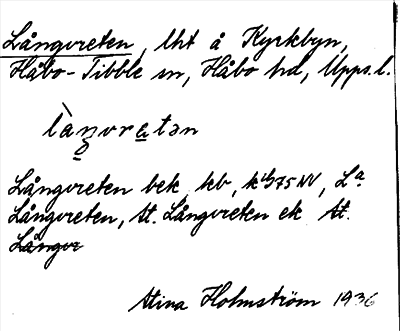 Långvreten, lht å Kyrkbyn,
Håbo-Tibble sn, Håbo hd, Upps. l.
Långvreten bek, kb, L:a
Långvreten, St. Långvreten ek St.
Långvr
Stina Holmström 1936